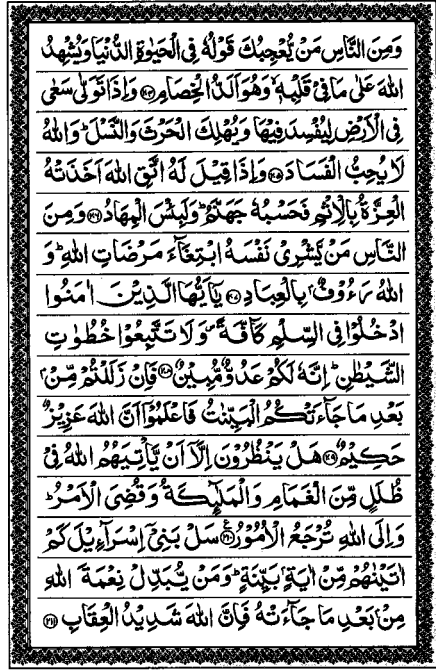 وَمِنَ النَّاسِ مَنْ يُّعْجِبُكَ قَوْلُهٗ فِى الْحَيٰوةِ الدُّنْيَا وَيُشْهِدُ
اللّٰهَ عَلٰى مَا فِىْ قَلْبِهٖ ۙ وَهُوَ اَلَدُّ الْخِصَامِ ﴿۲۰۴﴾ وَاِذَا تَوَلّٰى سَعٰى
فِى الْاَرْضِ لِيُفْسِدَ فِيْهَا وَيُهْلِكَ الْحَرْثَ وَالنَّسْلَ ؕ وَاللّٰهُ
لَا يُحِبُّ الْفَسَادَ ﴿۲۰۵﴾ وَاِذَا قِيْلَ لَهُ اتَّقِ اللّٰهَ اَخَذَتْهُ
الْعِزَّةُ بِالْاِثْمِ فَحَسْبُهٗ جَهَنَّمُ ؕ وَلَبِئْسَ الْمِهَادُ ﴿۲۰۶﴾ وَمِنَ
النَّاسِ مَنْ يَّشْرِىْ نَفْسَهُ ابْتِغَآءَ مَرْضَاتِ اللّٰهِ ؕ وَ
اللّٰهُ رَءُوْفٌۢ بِالْعِبَادِ ﴿۲۰۷﴾ يٰۤاَيُّهَا الَّذِيْنَ اٰمَنُوا
ادْخُلُوْا فِى السِّلْمِ كَآفَّةً ۪ وَلَا تَتَّبِعُوْا خُطُوٰتِ
الشَّيْطٰنِ ؕ اِنَّهٗ لَكُمْ عَدُوٌّ مُّبِيْنٌ ﴿۲۰۸﴾ فَاِنْ زَلَلْتُمْ مِّنْۢ
بَعْدِ مَا جَآءَتْكُمُ الْبَيِّنٰتُ فَاعْلَمُوْۤا اَنَّ اللّٰهَ عَزِيْزٌ
حَكِيْمٌ ﴿۲۰۹﴾ هَلْ يَنْظُرُوْنَ اِلَّاۤ اَنْ يَّاْتِيَهُمُ اللّٰهُ فِىْ
ظُلَلٍ مِّنَ الْغَمَامِ وَالْمَلٰٓئِكَةُ وَقُضِىَ الْاَمْرُ ؕ
وَاِلَى اللّٰهِ تُرْجَعُ الْاُمُوْرُ ﴿۲۱۰﴾ سَلْ بَنِىْۤ اِسْرَآءِيْلَ كَمْ
اٰتَيْنٰهُمْ مِّنْ اٰيَةٍۢ بَيِّنَةٍ ؕ وَمَنْ يُّبَدِّلْ نِعْمَةَ اللّٰهِ
مِنْۢ بَعْدِ مَا جَآءَتْهُ فَاِنَّ اللّٰهَ شَدِيْدُ الْعِقَابِ ﴿۲۱۱﴾